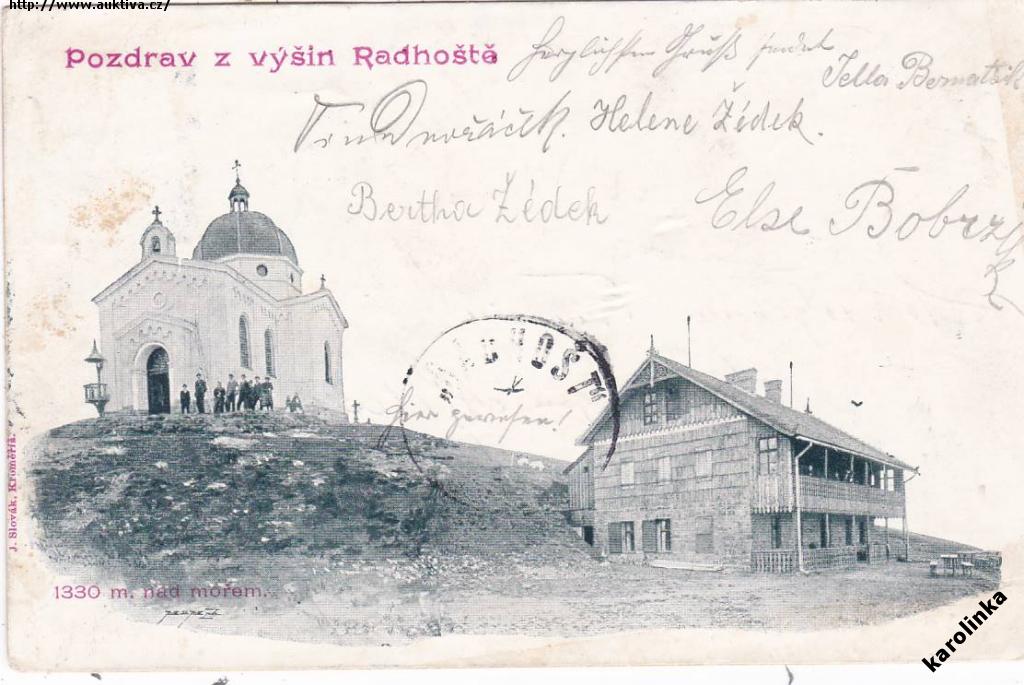 http://www.auktiva.cz/
Pozdrav z výšin Radhoště
Herzlichsten Gruß sendet
Jella
Helene Zédek.
Bertha Zédek
Else
"RADHOST"
Hier gewesen!
J. Slovák, Kroměříž.
1330 m. nad mořem.
karolinka